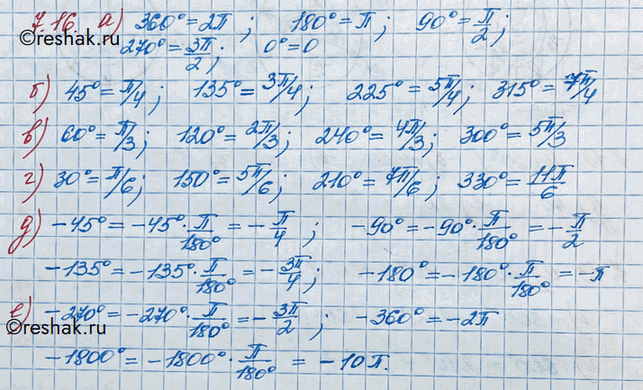 7.16. а) 360° = 2π; 180° = π; 90° = π/2;
270° = 3π/2; 0° = 0
©reshak.ru
б) 45° = π/4; 135° = 3π/4; 225° = 5π/4; 315° = 7π/4
в) 60° = π/3; 120° = 2π/3; 240° = 4π/3; 300° = 5π/3
г) 30° = π/6; 150° = 5π/6; 210° = 7π/6; 330° = 11π/6
д) -45° = -45° · π/180° = -π/4; -90° = -90° · π/180° = -π/2
-135° = -135° · π/180° = -3π/4; -180° = -180° · π/180° = -π
е) -270° = -270° · π/180° = -3π/2; -360° = -2π
©reshak.ru
-1800° = -1800° · π/180° = -10π.